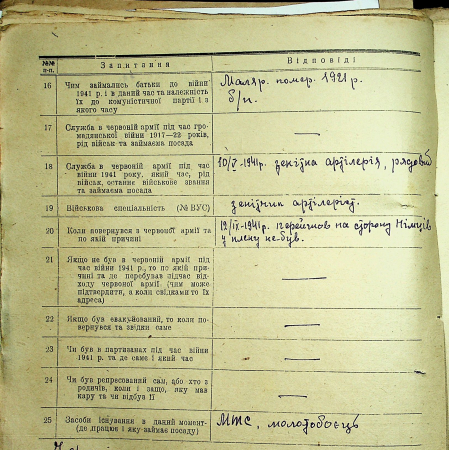 №№ п-п.
Запитання
Відповіді
16
Чим займались батьки до війни
1941 р. і в даний час та належність
їх до комуністичної партії і з
якого часу
Маляр. помер. 1921 р.
б/п.
17
Служба в червоній армії під час гро-
мадянської війни 1917—22 років,
рід військ та займаєма посада
—
18
Служба в червоній армії під час
війни 1941 року, який час, рід
військ, останнє військове звання
та займаєма посада
10/V-1941р. зенітна артілерія, рядовий
19
Військова спеціальність (№ ВУС)
зенітчик артілеріст.
20
Коли повернувся з червоної армії та
по якій причині
12/IX-1941р. перейшов на сторону Німців
у плену не був.
21
Якщо не був в червоній армії під
час війни 1941 р., то по якій при-
чині та де перебував підчас від-
ходу червоної армії (чим може
підтвердити, а коли свідками то їх
адреса)
—
22
Якщо був евакуйований, то коли по-
вернувся та звідки саме
—
23
Чи був в партизанах під час війни
1941 р. та де саме і який час
—
24
Чи був репресований сам, або хто з
родичів, коли і защо, яку мав
кару та чи відбув її
—
25
Засоби існування в даний момент
(де працює і яку займає посаду)
МТС, молотобоєць